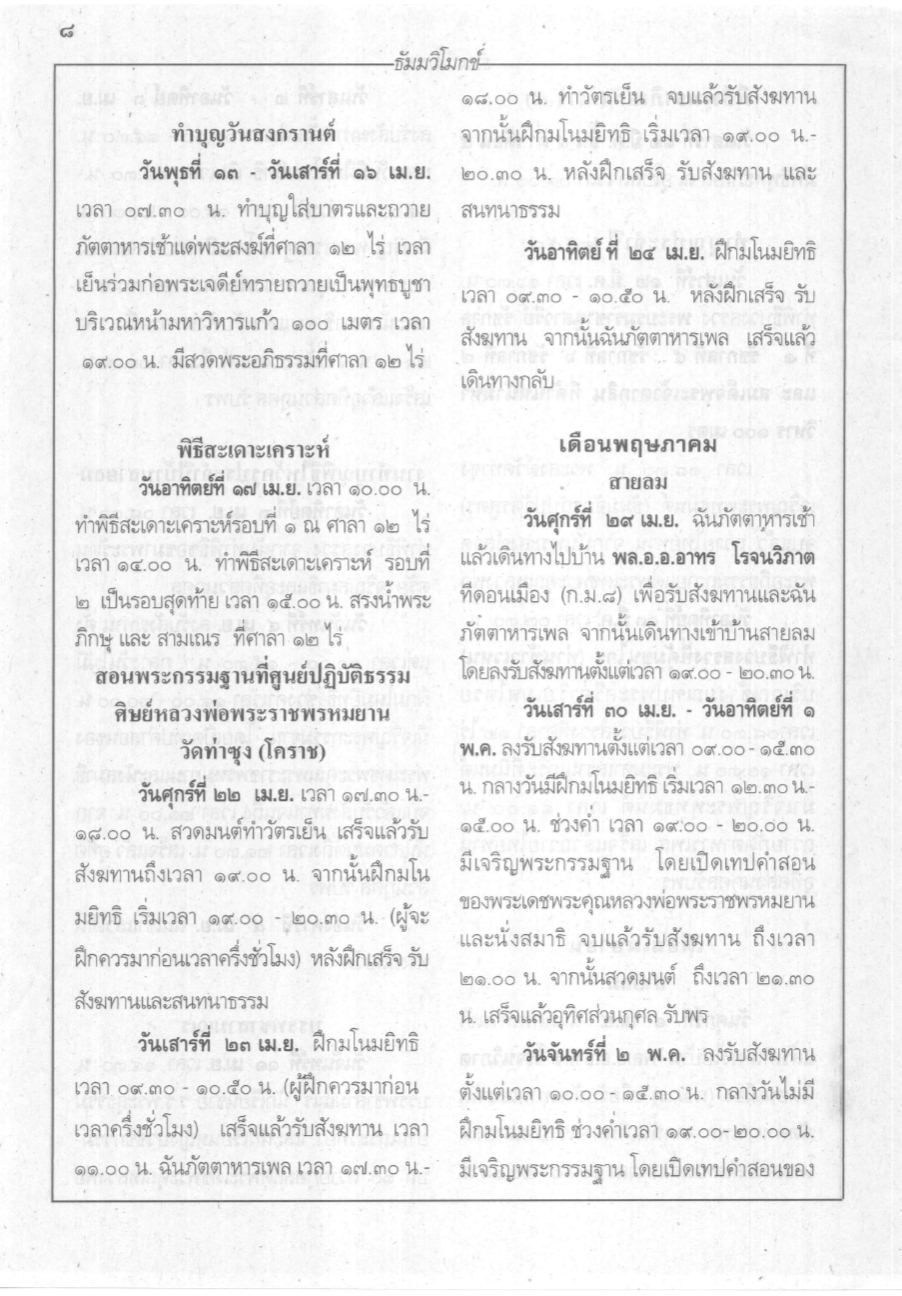 ๘
ธัมมวิโมกข์
ทำบุญวันสงกรานต์
วันพุธที่ ๑๓ - วันเสาร์ที่ ๑๖ เม.ย.
เวลา ๐๗.๓๐ น. ทำบุญใส่บาตรและถวาย
ภัตตาหารเช้าแด่พระสงฆ์ที่ศาลา ๑๒ ไร่ เวลา
เย็นร่วมก่อพระเจดีย์ทรายถวายเป็นพุทธบูชา
บริเวณหน้ามหาวิหารแก้ว ๑๐๐ เมตร เวลา
๑๙.๐๐ น. มีสวดพระอภิธรรมที่ศาลา ๑๒ ไร่
พิธีสะเดาะเคราะห์
วันอาทิตย์ที่ ๑๗ เม.ย. เวลา ๑๐.๐๐ น.
ทำพิธีสะเดาะเคราะห์รอบที่ ๑ ณ ศาลา ๑๒ ไร่
เวลา ๑๔.๐๐ น. ทำพิธีสะเดาะเคราะห์ รอบที่
๒ เป็นรอบสุดท้าย เวลา ๑๕.๐๐ น. สรงน้ำพระ
ภิกษุ และ สามเณร ที่ศาลา ๑๒ ไร่
สอนพระกรรมฐานที่ศูนย์ปฏิบัติธรรม
ศิษย์หลวงพ่อพระราชพรหมยาน
วัดท่าซุง (โคราช)
วันศุกร์ที่ ๒๒ เม.ย. เวลา ๑๗.๓๐ น.-
๑๘.๐๐ น. สวดมนต์ทำวัตรเย็น เสร็จแล้วรับ
สังฆทานถึงเวลา ๑๙.๐๐ น. จากนั้นฝึกมโน
มยิทธิ เริ่มเวลา ๑๙.๐๐ -๒๐.๓๐ น. (ผู้จะ
ฝึกควรมาก่อนเวลาครึ่งชั่วโมง) หลังฝึกเสร็จ รับ
สังฆทานและสนทนาธรรม
วันเสาร์ที่ ๒๓ เม.ย. ฝึกมโนมยิทธิ
เวลา ๐๙.๓๐ - ๑๐.๕๐ น. (ผู้ฝึกควรมาก่อน
เวลาครึ่งชั่วโมง) เสร็จแล้วรับสังฆทาน เวลา
๑๑.๐๐ น. ฉันภัตตาหารเพล เวลา ๑๗.๓๐ น.-
๑๘.๐๐ น. ทำวัตรเย็น จบแล้วรับสังฆทาน
จากนั้นฝึกมโนมยิทธิ เริ่มเวลา ๑๙.๐๐ น.-
๒๐.๓๐ น. หลังฝึกเสร็จ รับสังฆทาน และ
สนทนาธรรม
วันอาทิตย์ ที่ ๒๔ เม.ย. ฝึกมโนมยิทธิ
เวลา ๐๙.๓๐ - ๑๐.๕๐ น. หลังฝึกเสร็จ รับ
สังฆทาน จากนั้นฉันภัตตาหารเพล เสร็จแล้ว
เดินทางกลับ
เดือนพฤษภาคม
สายลม
วันศุกร์ที่ ๒๙ เม.ย. ฉันภัตตาหารเช้า
แล้วเดินทางไปบ้าน พล.อ.อ.อาทร โรจนวิภาต
ที่ดอนเมือง (ก.ม.๘) เพื่อรับสังฆทานและฉัน
ภัตตาหารเพล จากนั้นเดินทางเข้าบ้านสายลม
โดยลงรับสังฆทานตั้งแต่เวลา ๑๙.๐๐ - ๒๐.๓๐ น.
วันเสาร์ที่ ๓๐ เม.ย. - วันอาทิตย์ที่ ๑
พ.ค. ลงรับสังฆทานตั้งแต่เวลา ๐๙.๐๐ - ๑๕.๓๐
น. กลางวันมีฝึกมโนมยิทธิ เริ่มเวลา ๑๒.๓๐ น.-
๑๕.๐๐ น. ช่วงค่ำ เวลา ๑๙.๐๐ - ๒๐.๐๐ น.
มีเจริญพระกรรมฐาน โดยเปิดเทปคำสอน
ของพระเดชพระคุณหลวงพ่อพระราชพรหมยาน
และนั่งสมาธิ จบแล้วรับสังฆทาน ถึงเวลา
๒๑.๐๐ น. จากนั้นสวดมนต์ ถึงเวลา ๒๑.๓๐
น. เสร็จแล้วอุทิศส่วนกุศล รับพร
วันจันทร์ที่ ๒ พ.ค. ลงรับสังฆทาน
ตั้งแต่เวลา ๑๐.๐๐ - ๑๕.๓๐ น. กลางวันไม่มี
ฝึกมโนมยิทธิ ช่วงค่ำเวลา ๑๙.๐๐- ๒๐.๐๐ น.
มีเจริญพระกรรมฐาน โดยเปิดเทปคำสอนของ